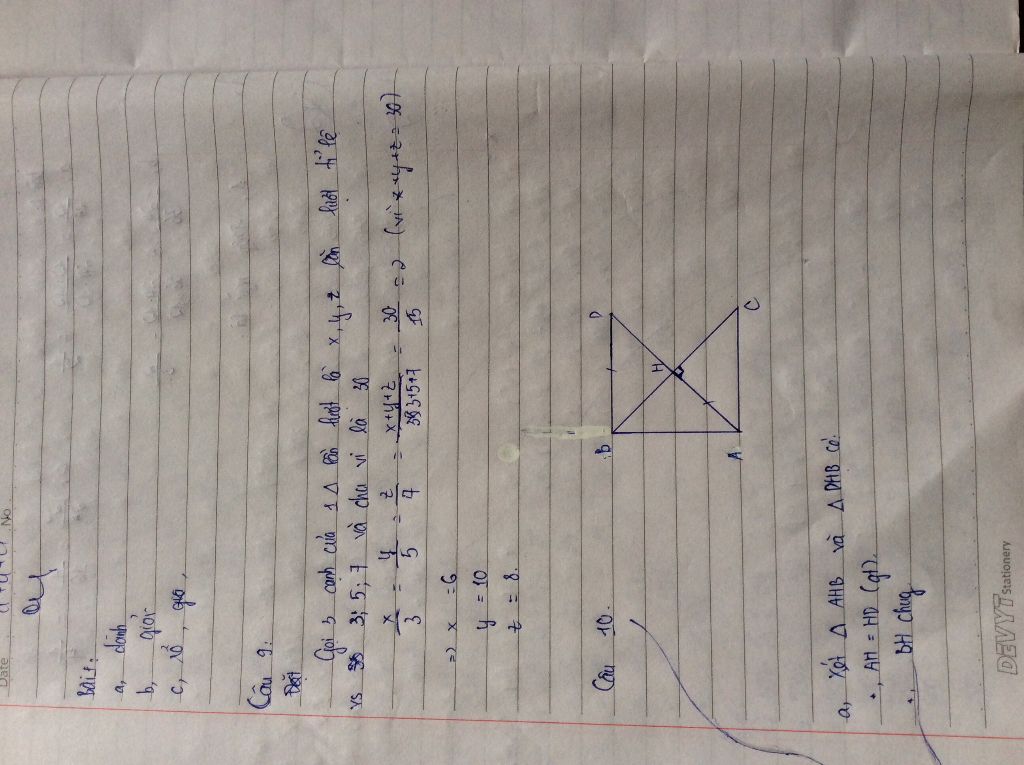 Date No
Bài 8:
a, dành
b, giỏi
c, rổ, gió,
Câu 9:
Gọi 3 cạnh của 1 Δ lần lượt là x, y, z lần lượt tỉ lệ
vs 3; 5; 7 và chu vi là 30
x/3 = y/5 = z/7 = x+y+z/3+5+7 = 30/15 = 2 (vì x+y+z = 30)
=> x = 6
y = 10
z = 8.
Câu 10.
B D
H
A C
a, Xét Δ AHB và Δ DHB có:
+, AH = HD (gt).
+, BH chug
DEVYT Stationery